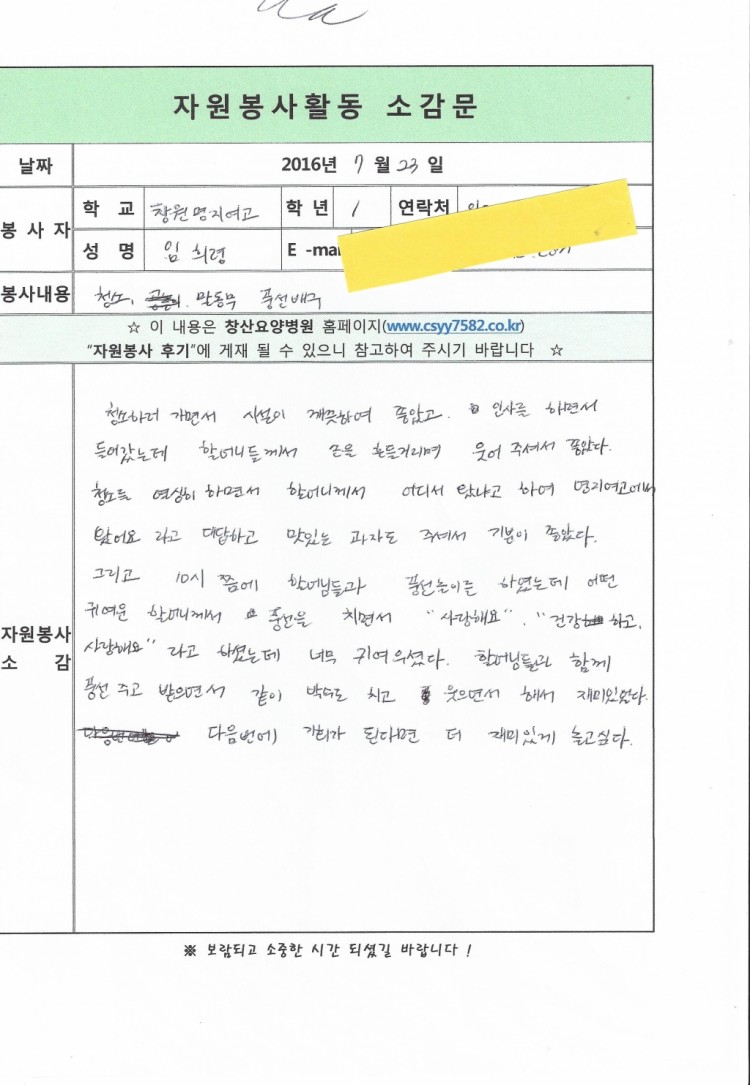 자원봉사활동 소감문
날짜 2016년 7월 23일
봉사자 학교 창원명지여고 학년 1 연락처
성명 임희령 E-mai
봉사내용 청소, 말동무 풍선배구
☆ 이 내용은 창산요양병원 홈페이지(www.csyy7582.co.kr)
"자원봉사 후기"에 게재 될 수 있으니 참고하여 주시기 바랍니다 ☆
청소하러 가면서 시설이 깨끗하여 좋았고. 인사를 하면서
들어갔는데 할머니들께서 손을 흔들거리며 웃어 주셔서 좋았다.
청소를 열심히 하면서 할머니께서 어디서 왔냐고 하여 명지여고에서
왔어요 라고 대답하고 맛있는 과자도 주셔서 기분이 좋았다.
그리고 10시 쯤에 할머님들과 풍선놀이를 하였는데 어떤
귀여운 할머니께서 풍선을 치면서 "사랑해요". "건강하고,
자원봉사 소감 사랑해요" 라고 하셨는데 너무 귀여우셨다. 할머님들과 함께
풍선 주고 받으면서 같이 박수도 치고 웃으면서 해서 재미있었다.
다음번에 기회가 된다면 더 재미있게 놀고싶다.
※ 보람되고 소중한 시간 되셨길 바랍니다 !